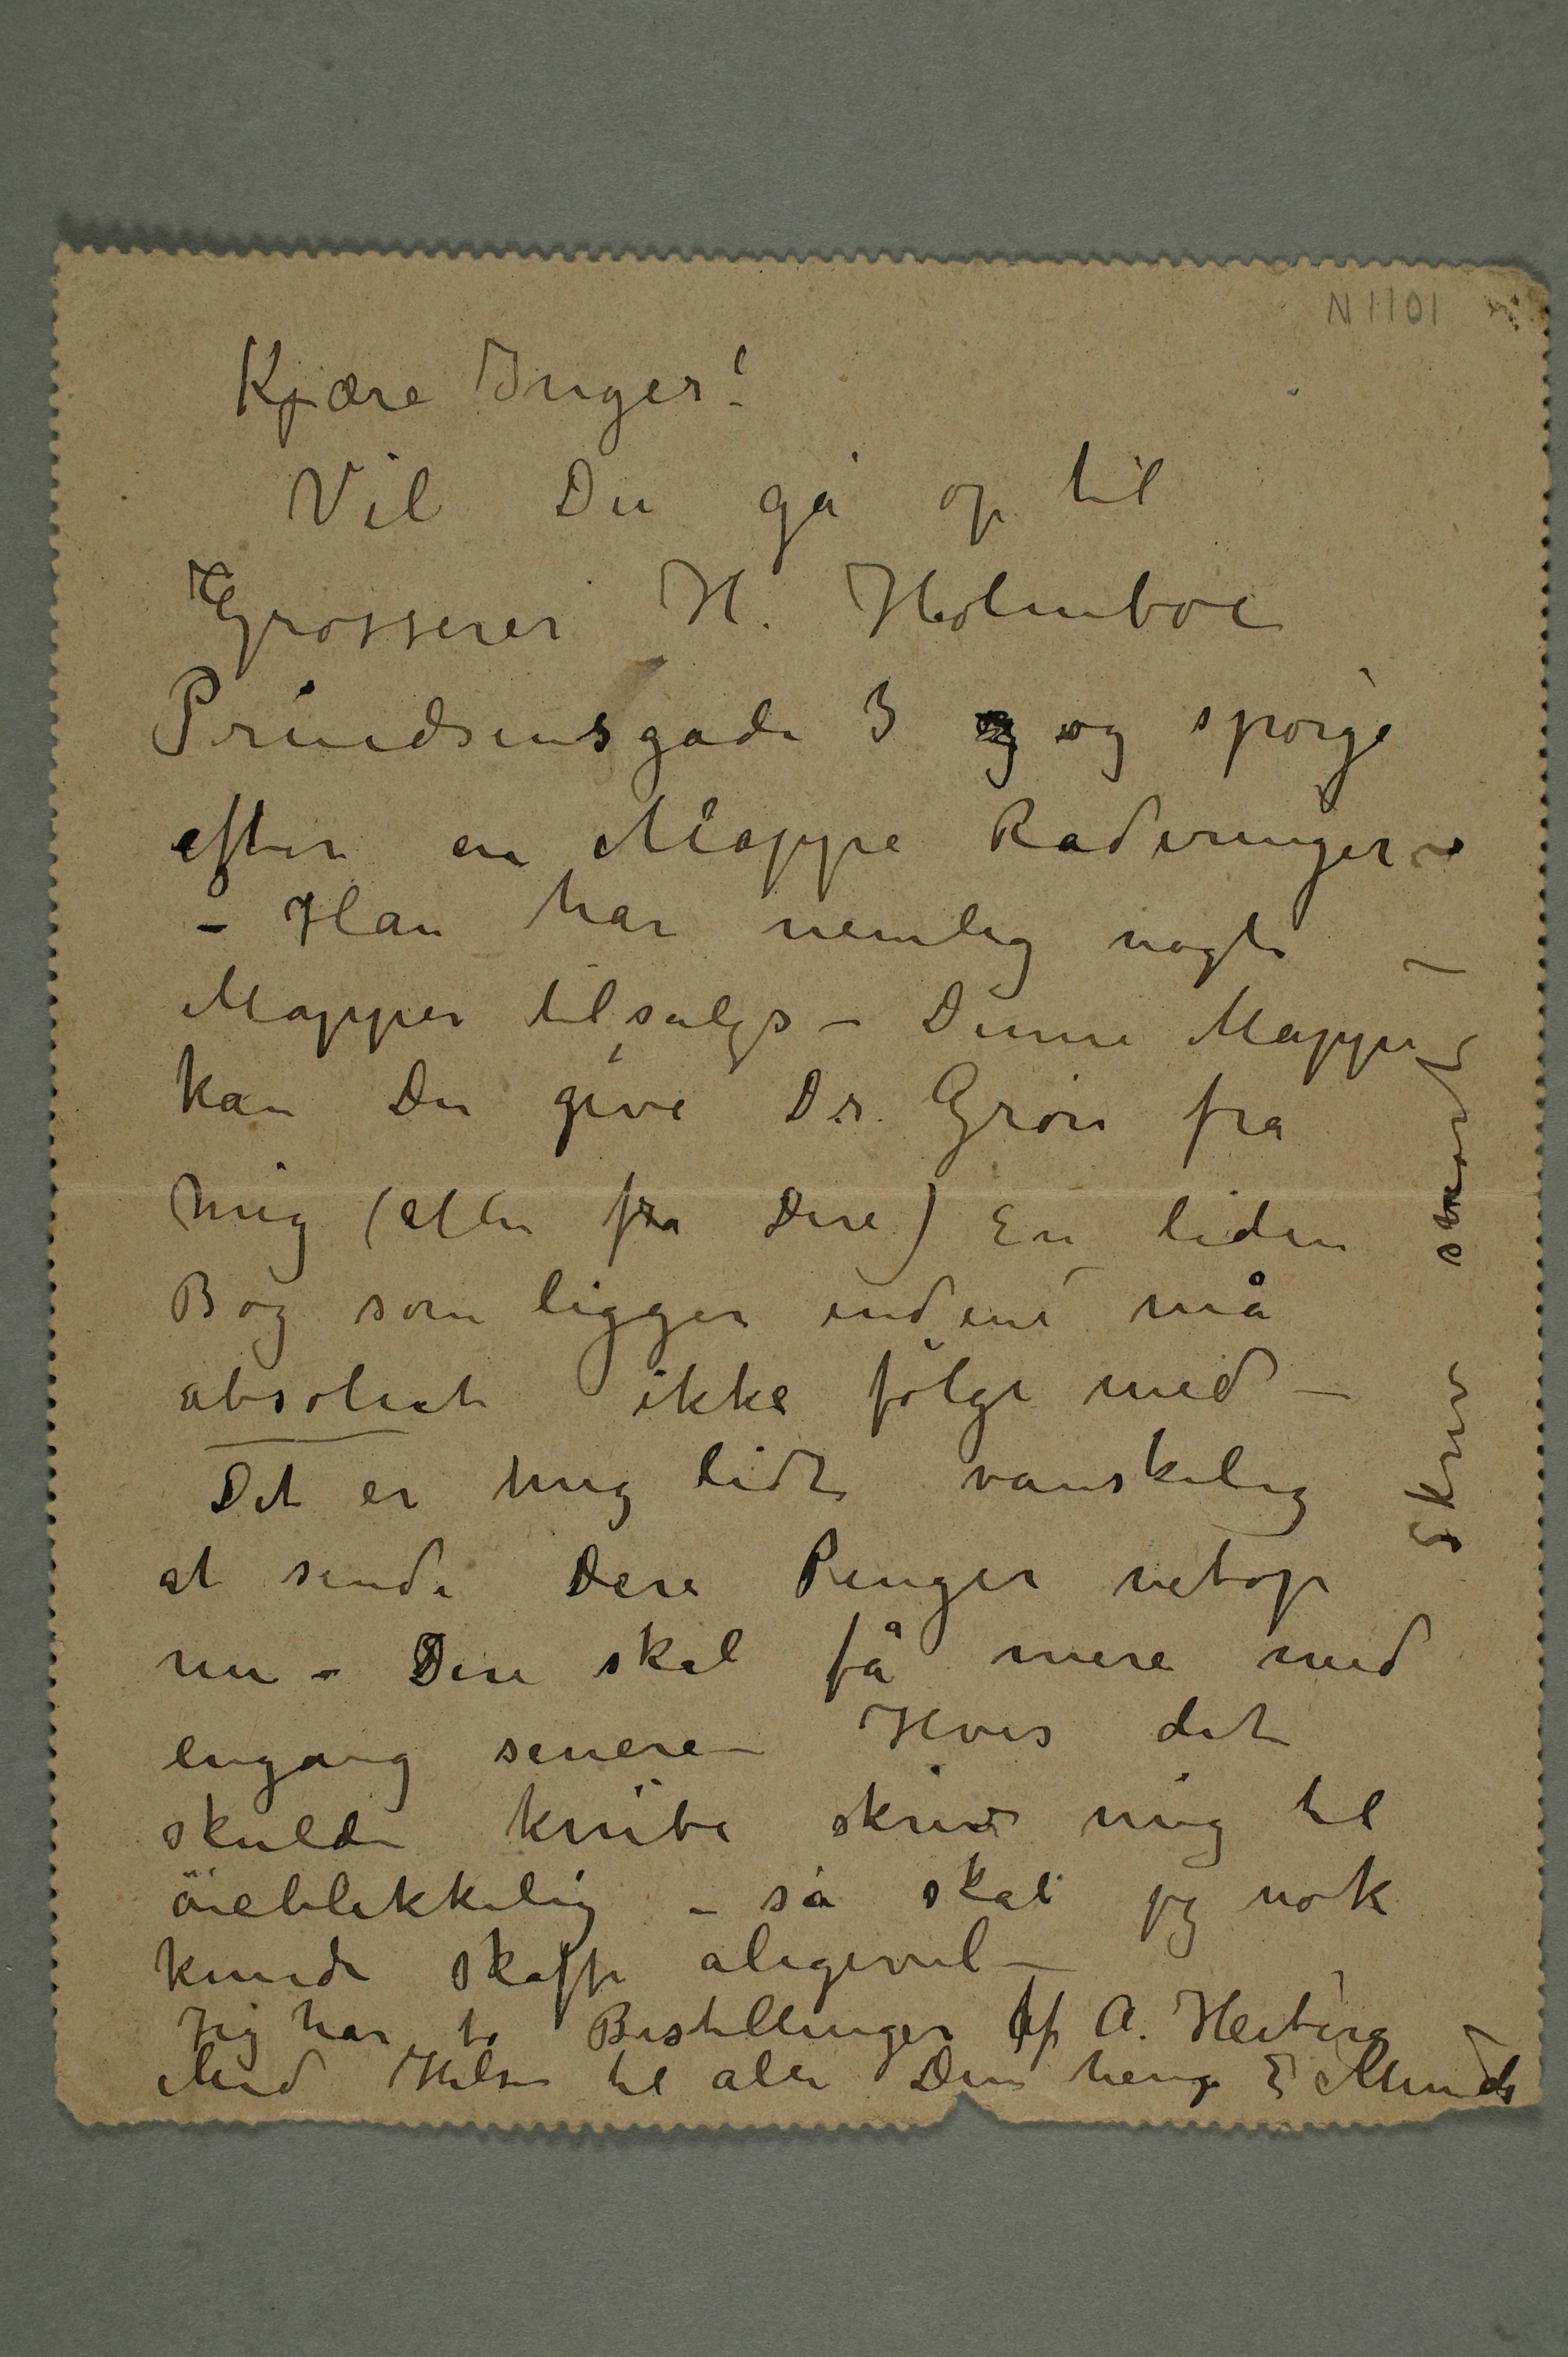 N 1101
Kjære Inger!
Vil Du gå op til
Grosserer H. Holmboe
Prindsensgade 3 og spørge
efter en Mappe Raderinger –
– Han har nemlig nogle –
Mapper tilsalgs – Denne Mappe
kan Du give Dr. Grøn fra
mig (eller fra Dere) En liden
Bog som ligger indeni må
absolut ikke følge med –
Det er mig lidt vanskelig
at sende Dere Penger netop
nu – Dere skal få mere med
engang senere – Hvis det
skulde knibe skriv mig til
øieblikkelig – så skal jeg nok
kunde skaffe aligevel –
Jeg har to Bestillinger af A. Heiberg –
Med Hilsen til alle Din heng E Munch
Skriv snart